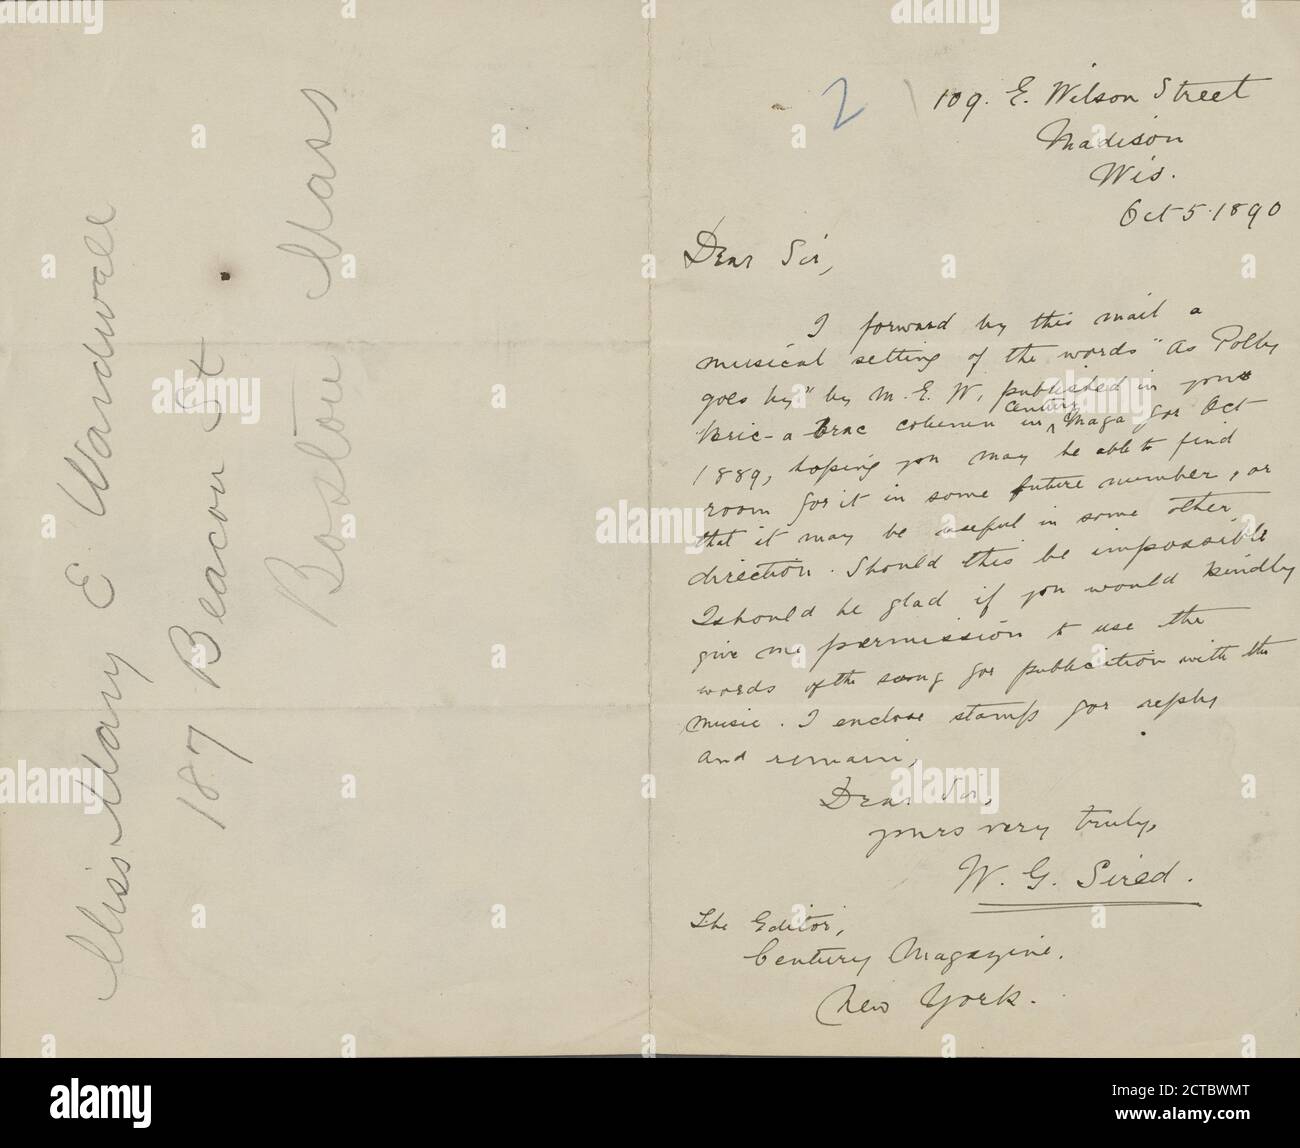 Miss Mary E Wardwell
187 Beacon St
Boston Mass
2
109. E. Wilson Street
Madison
Wis.
Oct 5. 1890
Dear Sir,
I forward by this mail a
musical setting of the words "As Polly
goes by" by M. E. W. published in your
Bric-a Brac column in Century Maga for Oct
1889, hoping you may be able to find
room for it in some future number, or
that it may be useful in some other
direction. Should this be impossible
I should be glad if you would kindly
give me permission to use the
words of the song for publication with the
music. I enclose stamp for reply
and remain,
Dear Sir,
yours very truly,
W. G. Sired.
The Editor,
Century Magazine.
New York.
alamy
Image ID: 2CTBWMT
www.alamy.com